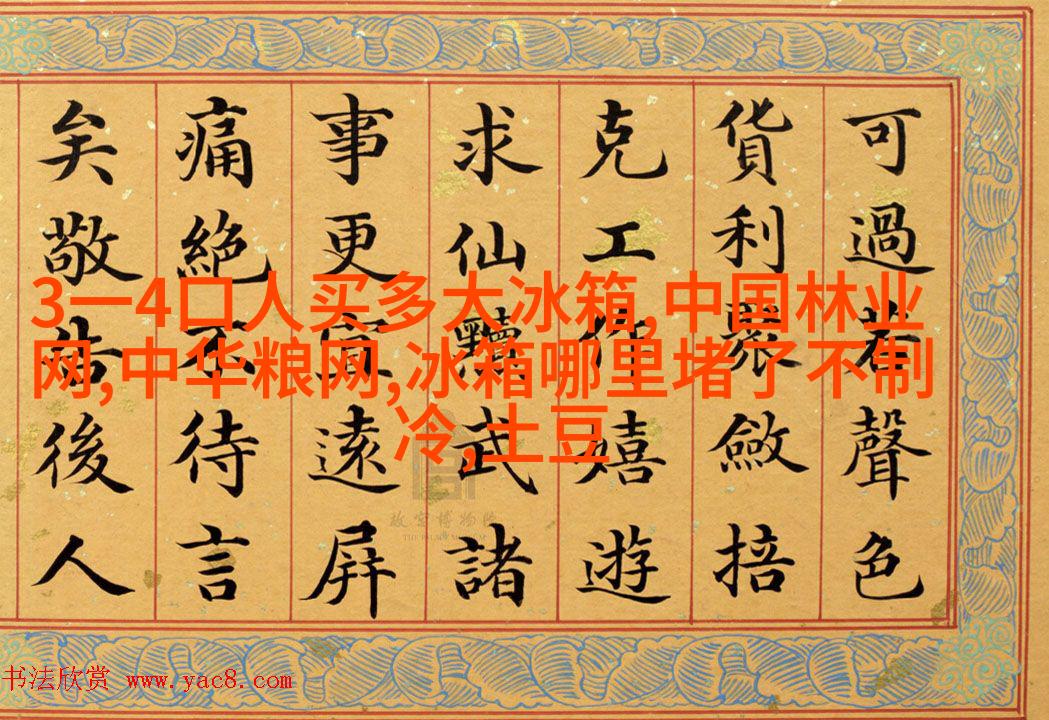 可過若聲色
貨利聚斂掊
克工作嬉遊
求仙黷武諸
事更宜遠屏
痛絕不待言
矣敬告後人
3一4口人买多大冰箱,中国林业
网,中华粮网,冰箱哪里堵了不制
冷,土豆
故宫博物院
书法欣赏 www.yac8.com